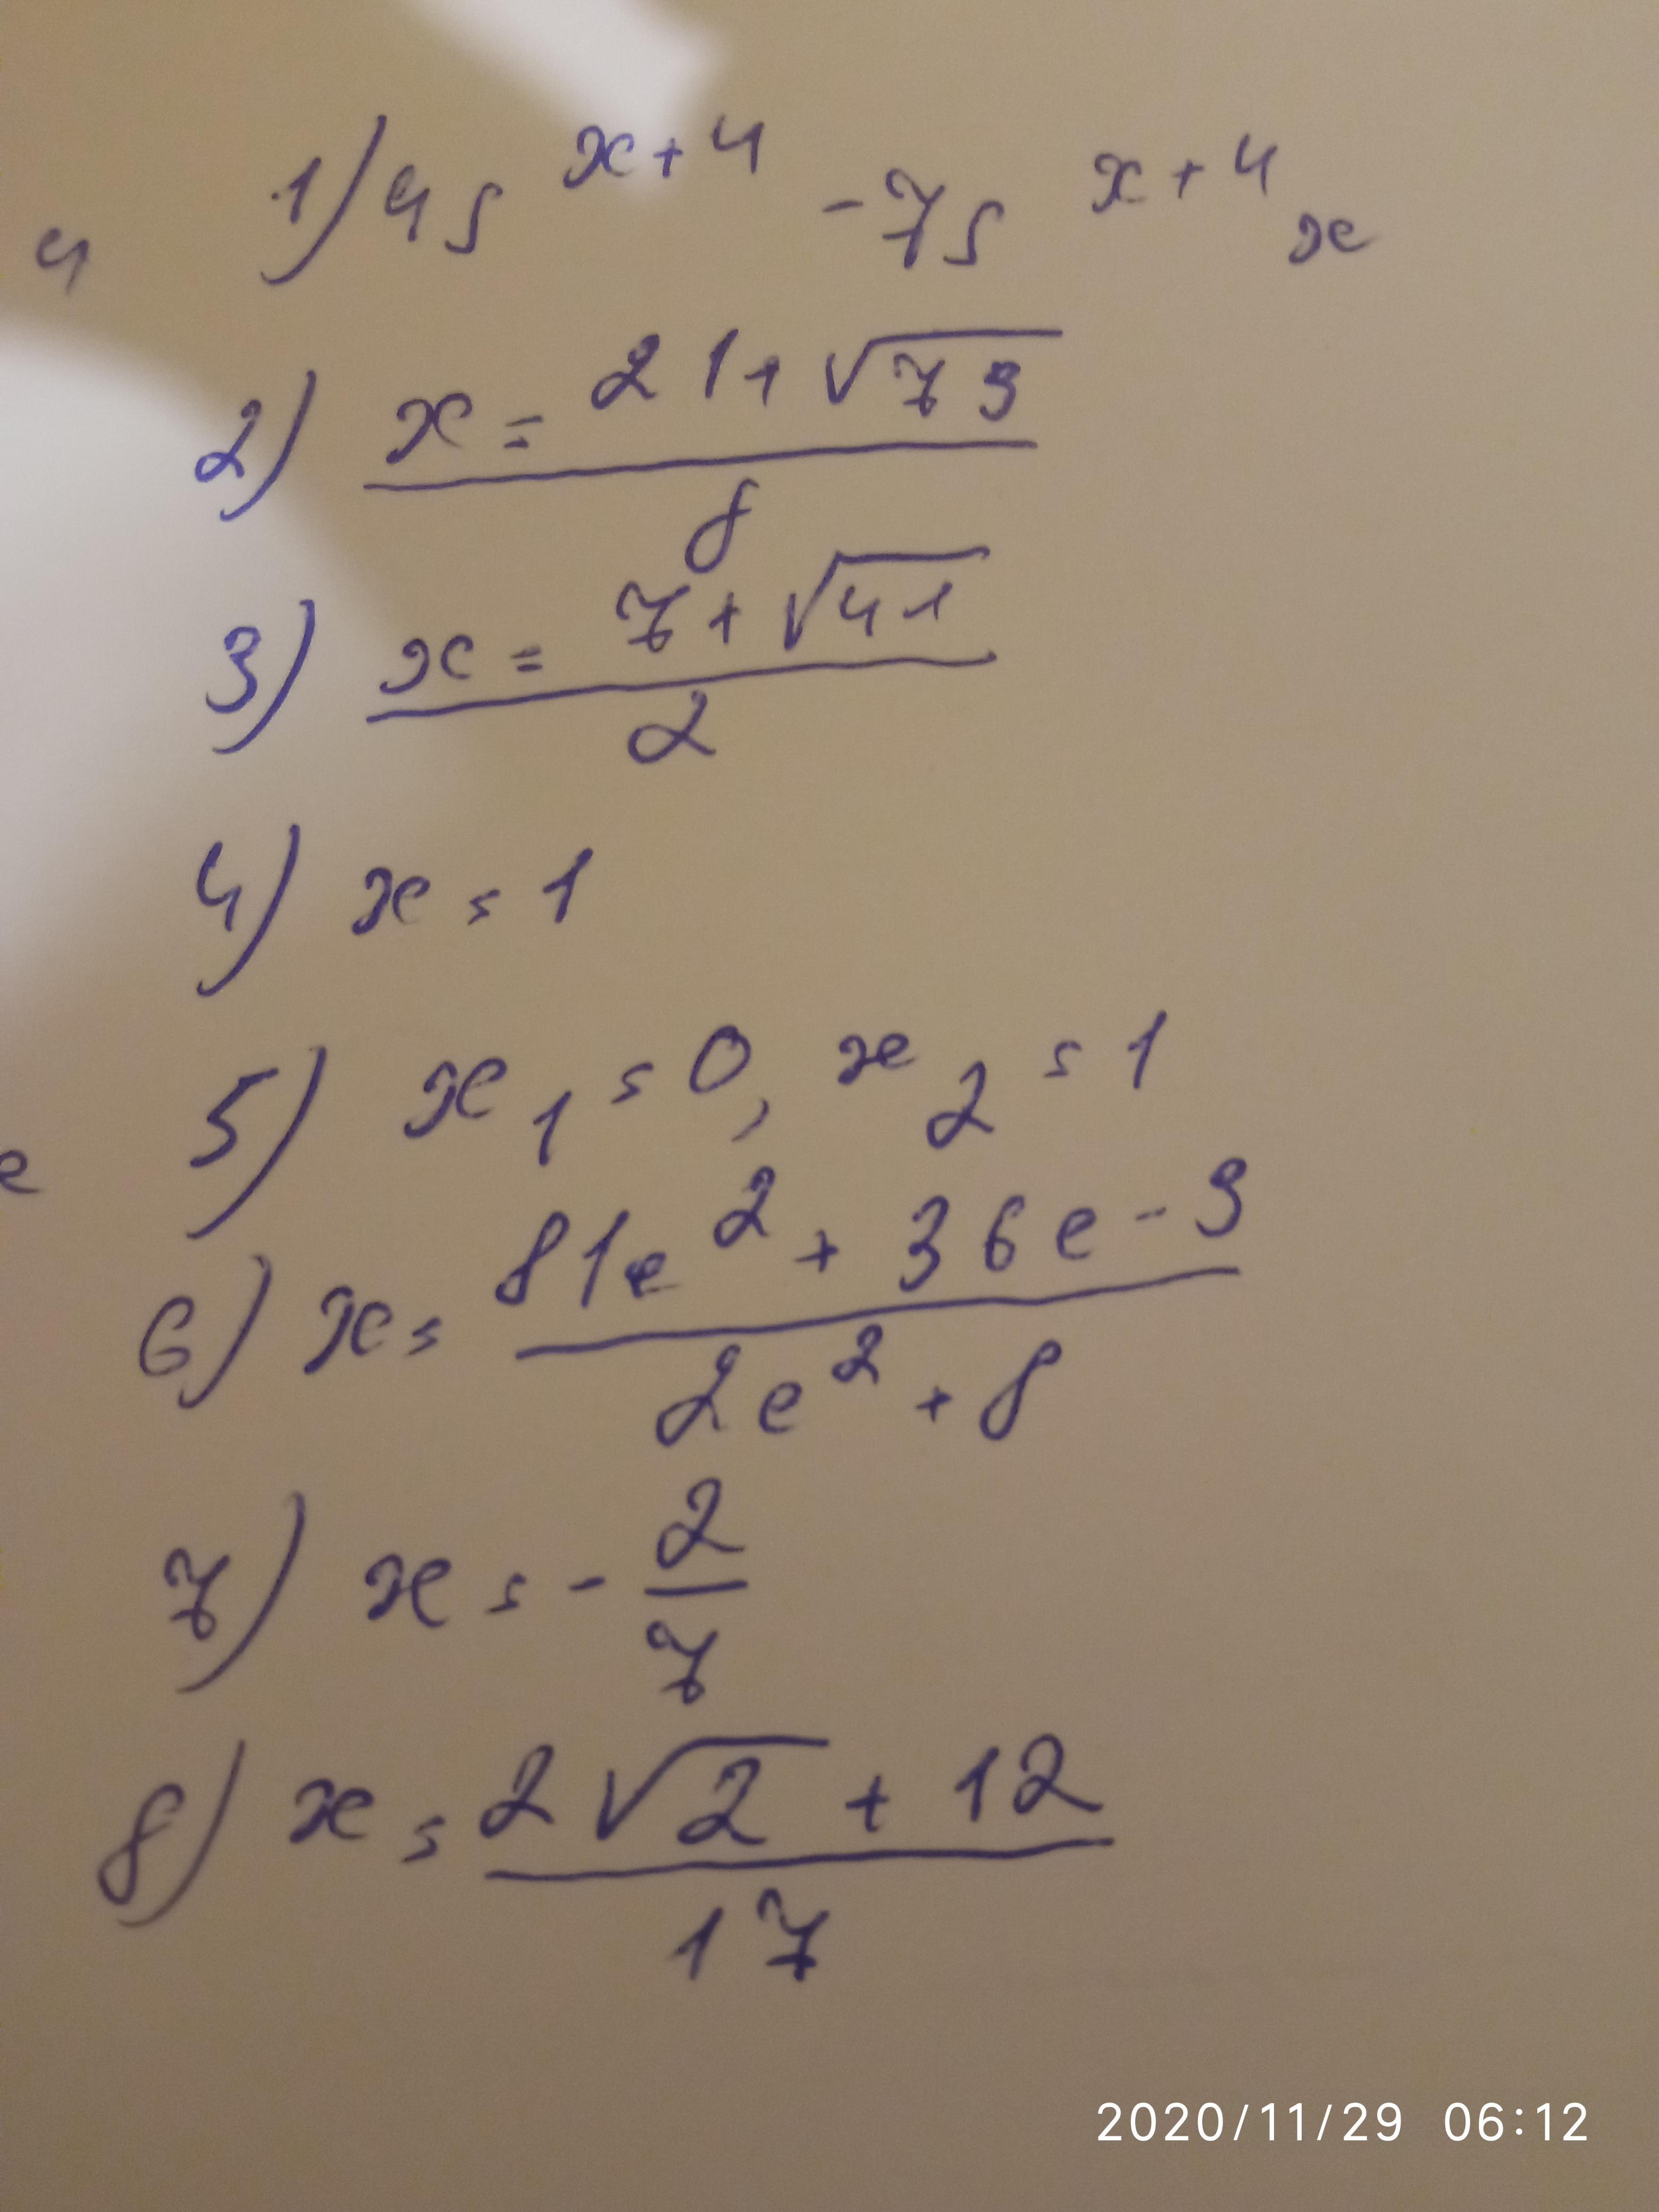 1) 45^{x+4} - 75^{x+4} x
ч
2) x = \frac{21+\sqrt{73}}{8}
3) x = \frac{7+\sqrt{41}}{2}
4) x = 1
5) x_1 = 0, x_2 = 1
е
6) x = \frac{81e^2 + 36e - 9}{2e^2 + 8}
7) x = -\frac{2}{7}
8) x = \frac{2\sqrt{2} + 12}{17}
2020/11/29 06:12